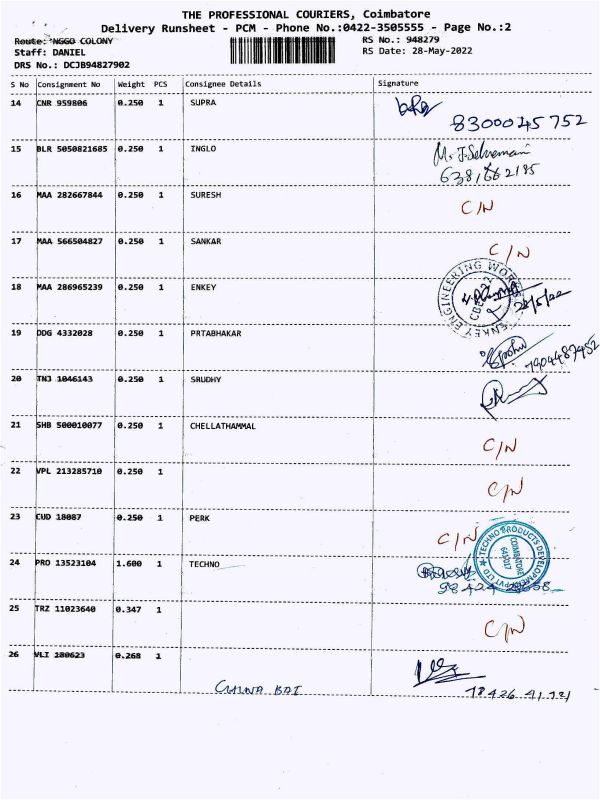 THE PROFESSIONAL COURIERS, Coimbatore
Delivery Runsheet - PCM - Phone No.:0422-3505555 - Page No.:2
Route: NGGO COLONY RS No.: 948279
Staff: DANIEL RS Date: 28-May-2022
DRS No.: DCJB94827902
S No Consignment No Weight PCS Consignee Details Signature
14 CNR 959806 0.250 1 SUPRA
8300045752
15 BLR 5050821685 0.250 1 INGLO
Mr. J. Selvamani
6381662195
16 MAA 282667844 0.250 1 SURESH
C/N
17 MAA 566504827 0.250 1 SANKAR
C/N
18 MAA 286965239 0.250 1 ENKEY
ENKEY ENGINEERING WORKS
28/5/22
19 DDG 4332028 0.250 1 PRTABHAKAR
7904487952
20 TNJ 1046143 0.250 1 SRUDHY
21 SHB 500010077 0.250 1 CHELLATHAMMAL
C/N
22 VPL 213285710 0.250 1
C/N
23 CUD 18087 0.250 1 PERK
C/N
24 PRO 13523104 1.600 1 TECHNO
TECHNO PRODUCTS DEVELOPMENT PVT LTD
COIMBATORE
641017
98424
25 TRZ 11023640 0.347 1
C/N
26 VLI 180623 0.268 1